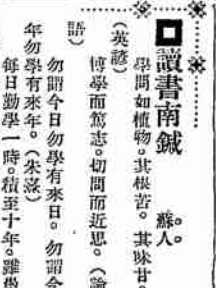 讀書南鍼
蘇人
學問如植物。其根苦。其味甘。
(英諺)
博學而篤志。切問而近思。(論
語)
勿謂今日勿學有來日。勿謂今
年勿學有來年。(朱熹)
每日勤學一時。積至十年。雖